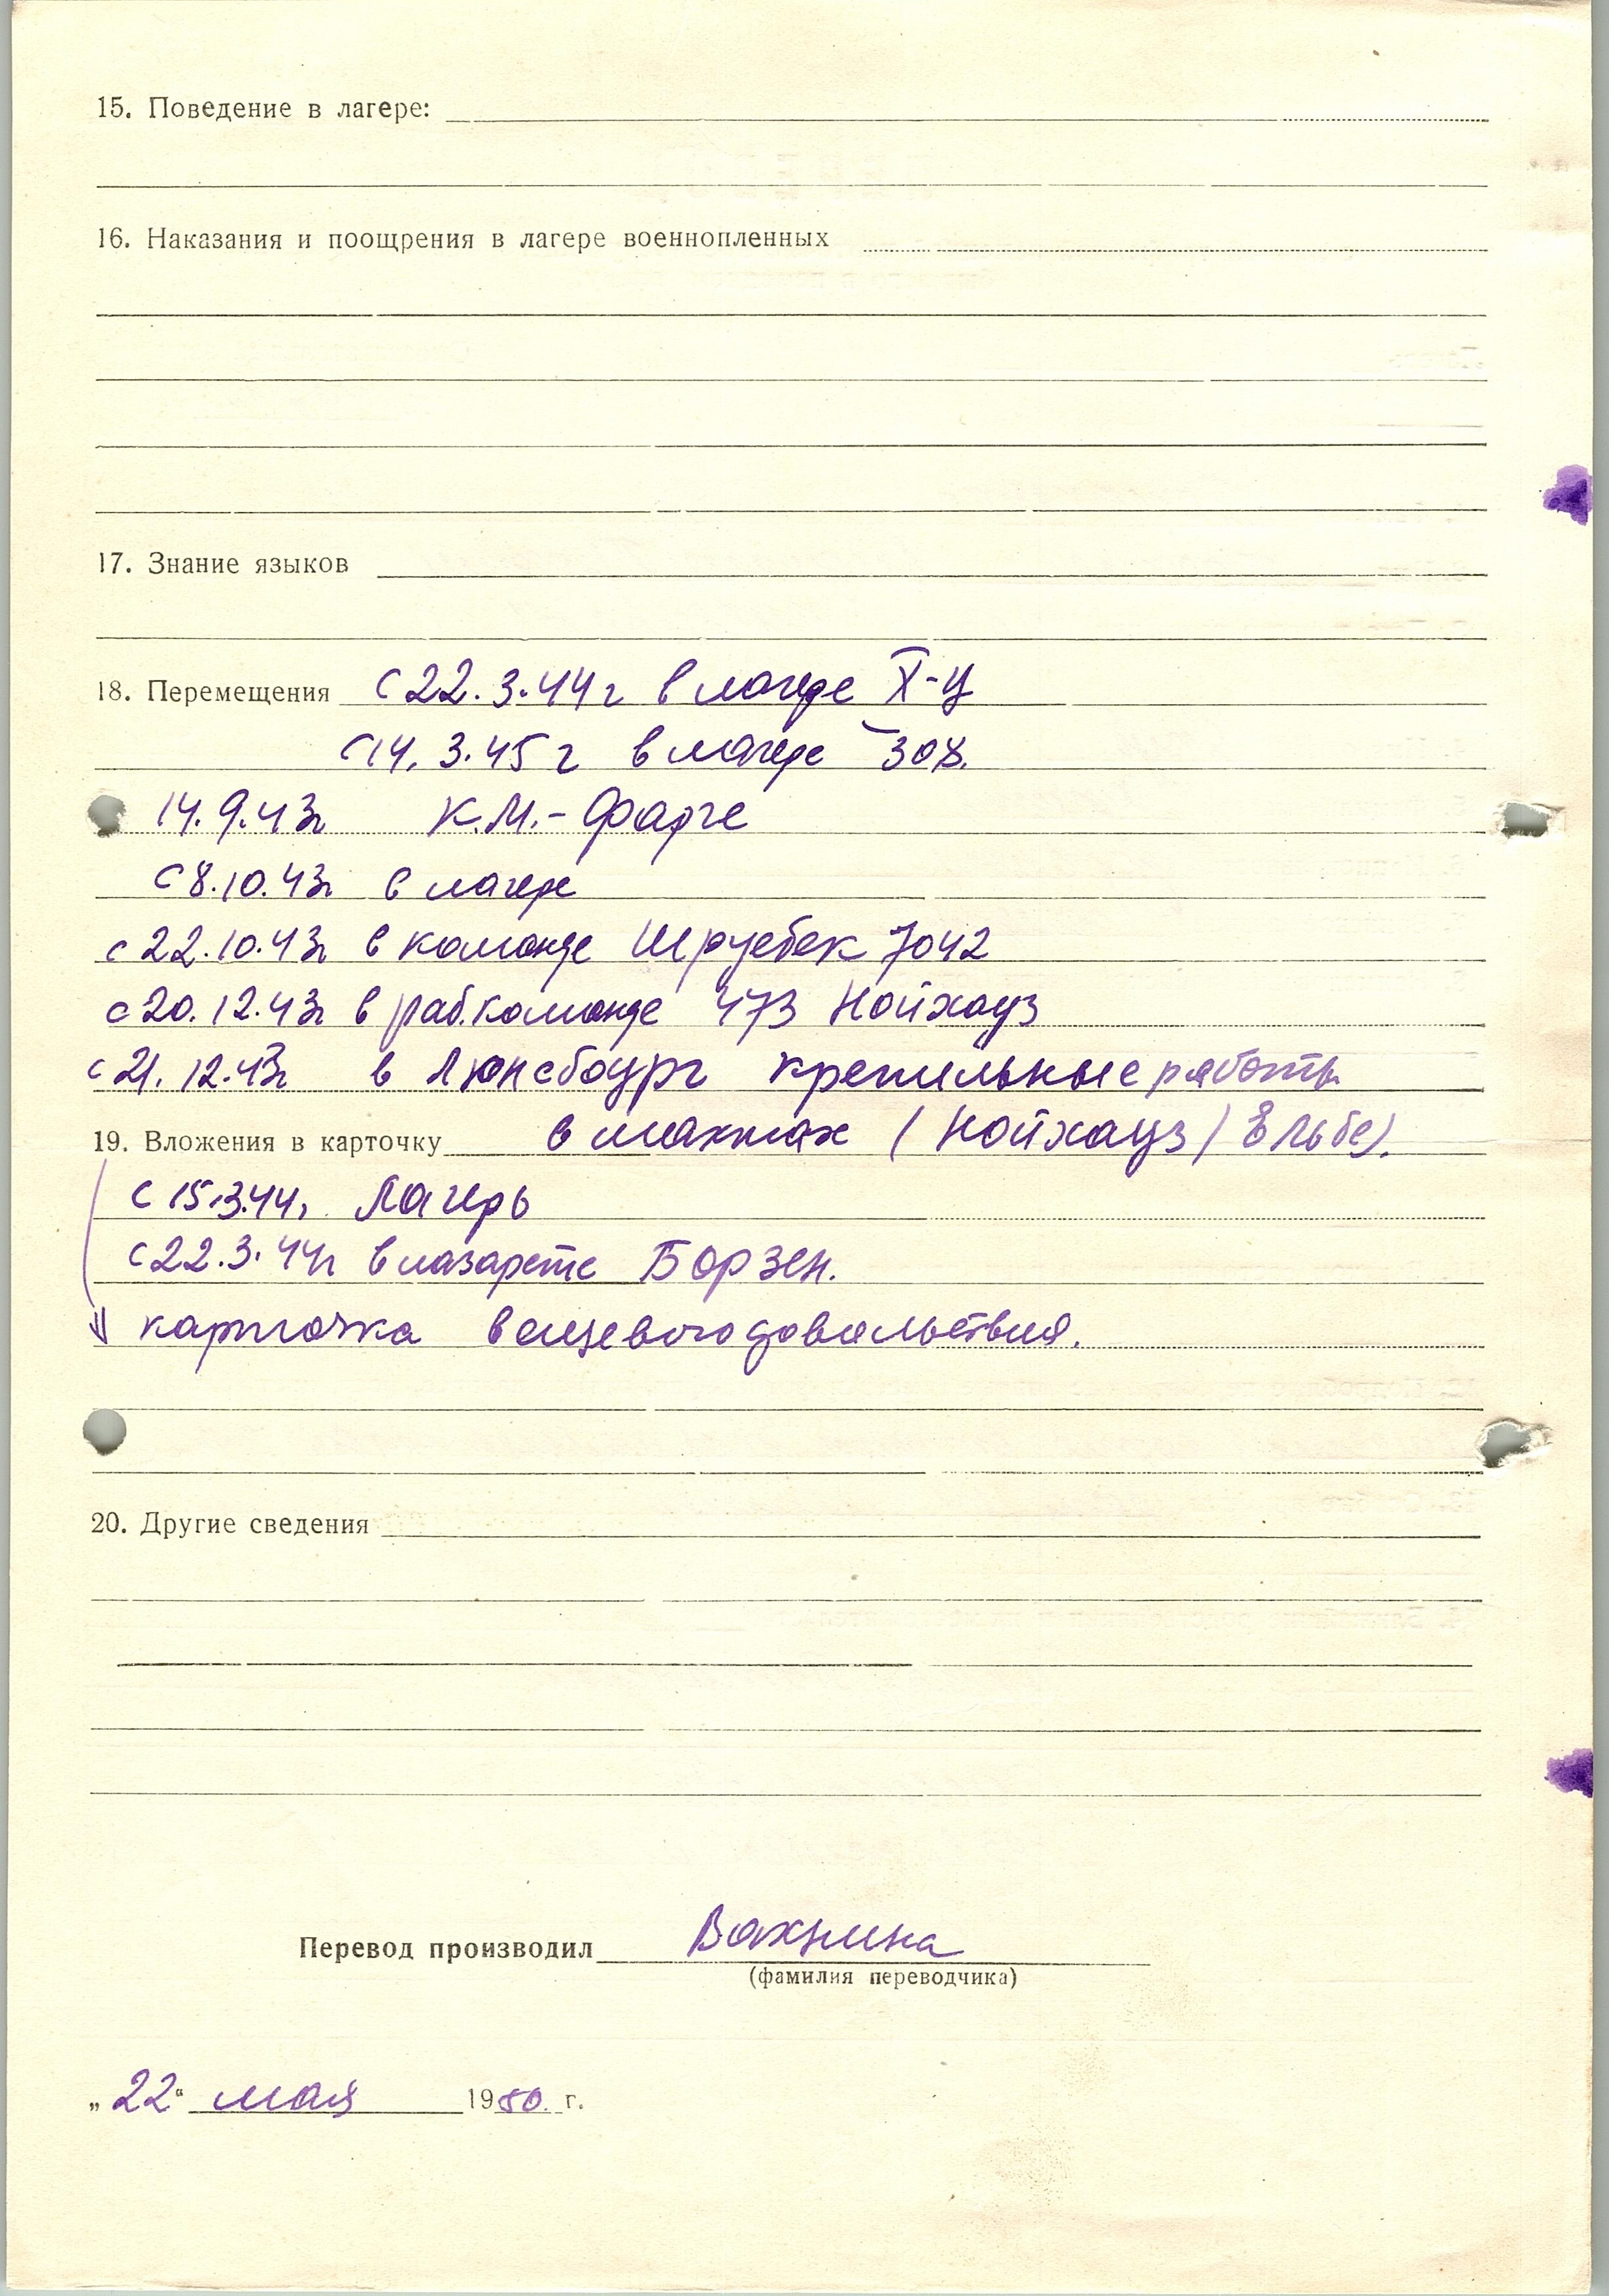 15. Поведение в лагере:
16. Наказания и поощрения в лагере военнопленных
17. Знание языков
18. Перемещения с 22.3.44г в лагере X-Ц
с 14.3.45г в лагере 308.
14.9.43г К.М.-Фарге
с 8.10.43г в лагере
с 22.10.43г в команде 7042
с 20.12.43г в раб.команде 473 Нойхауз
с 21.12.43г в Люнебоург крепильные работы
19. Вложения в карточку в шахтах (Нойхауз / Ельбе).
с 15.3.44г. Лагерь
с 22.3.44г в лазарете Борзен.
карточка вещевого довольствия.
20. Другие сведения
Перевод производил Вахнина
(фамилия переводчика)
„22“ мая 1950. г.